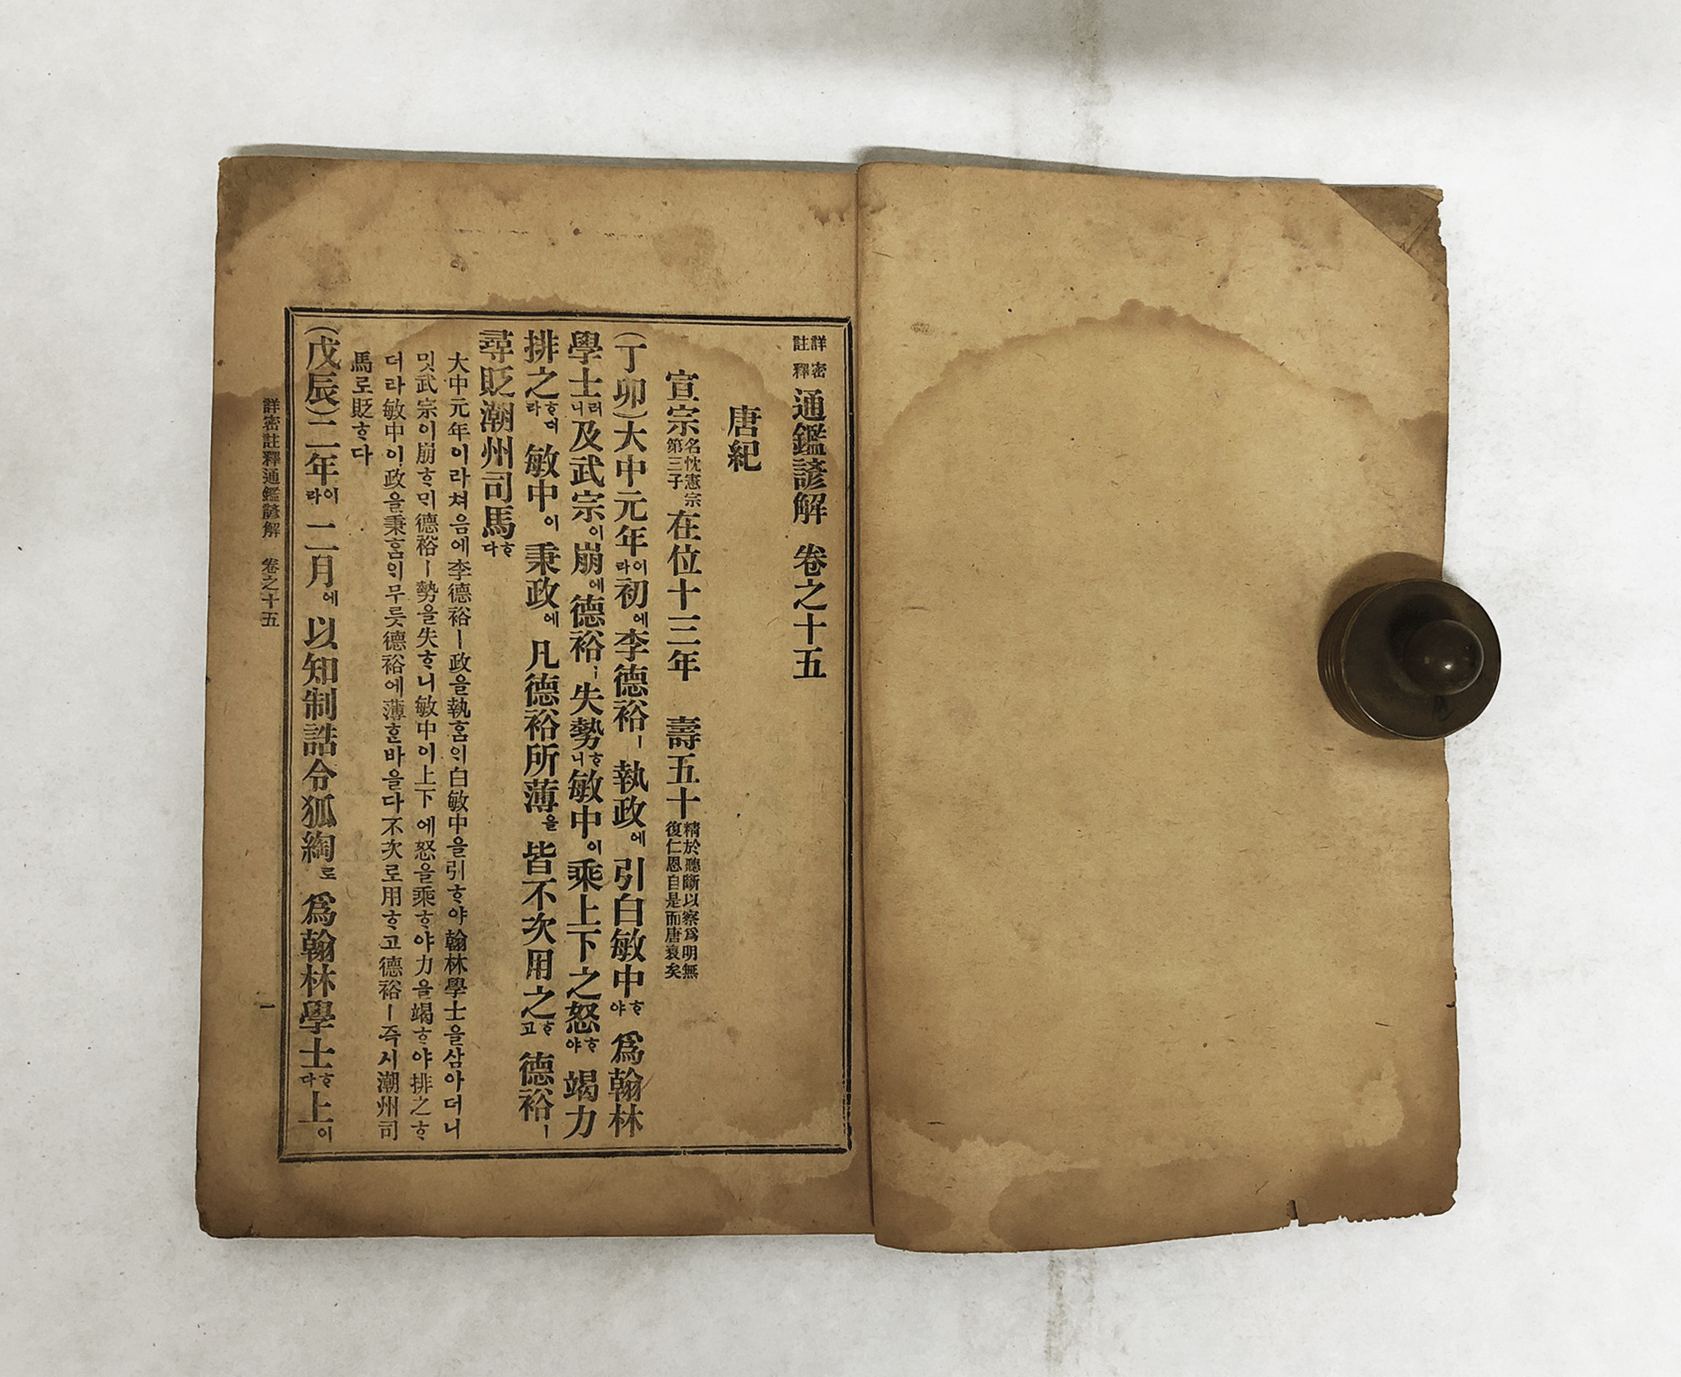 詳密註釋 通鑑諺解 卷之十五
唐紀
宣宗 名忱憲宗第三子 在位十三年 壽五十 精於聽斷以察爲明無復仁恩自是而唐衰矣
(丁卯)大中元年이라初에李德裕ㅣ執政에引白敏中ᄒᆞ야爲翰林
學士러니及武宗이崩에德裕ㅣ失勢ᄒᆞ니敏中이乘上下之怒ᄒᆞ야竭力
排之ᄒᆞ더라敏中이秉政에凡德裕所薄을皆不次用之ᄒᆞ고德裕ㅣ
尋貶潮州司馬ᄒᆞ다
大中元年이라쳐음에李德裕ㅣ政을執ᄒᆞᆷᄋᆡ白敏中을引ᄒᆞ야翰林學士을삼아더니
밋武宗이崩ᄒᆞᄆᆡ德裕ㅣ勢을失ᄒᆞ니敏中이上下에怒을乘ᄒᆞ야力을竭ᄒᆞ야排之ᄒᆞ
더라敏中이政을秉ᄒᆞᆷᄋᆡ무릇德裕에薄ᄒᆞᆫ바을다不次로用ᄒᆞ고德裕ㅣ즉시潮州司
馬로貶ᄒᆞ다
(戊辰)二年이라二月에以知制誥令狐綯로爲翰林學士ᄒᆞ다上이
詳密註釋通鑑諺解 卷之十五 一